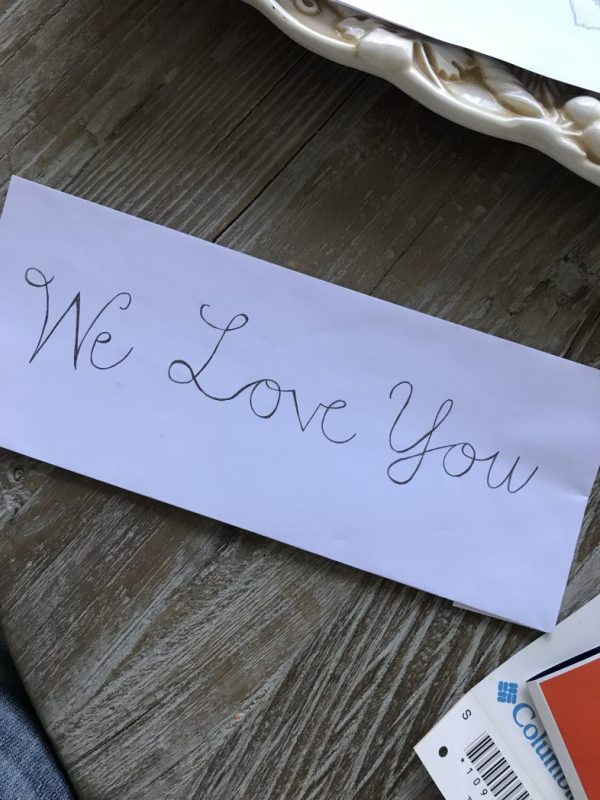 We Love You
Columb
S
*109